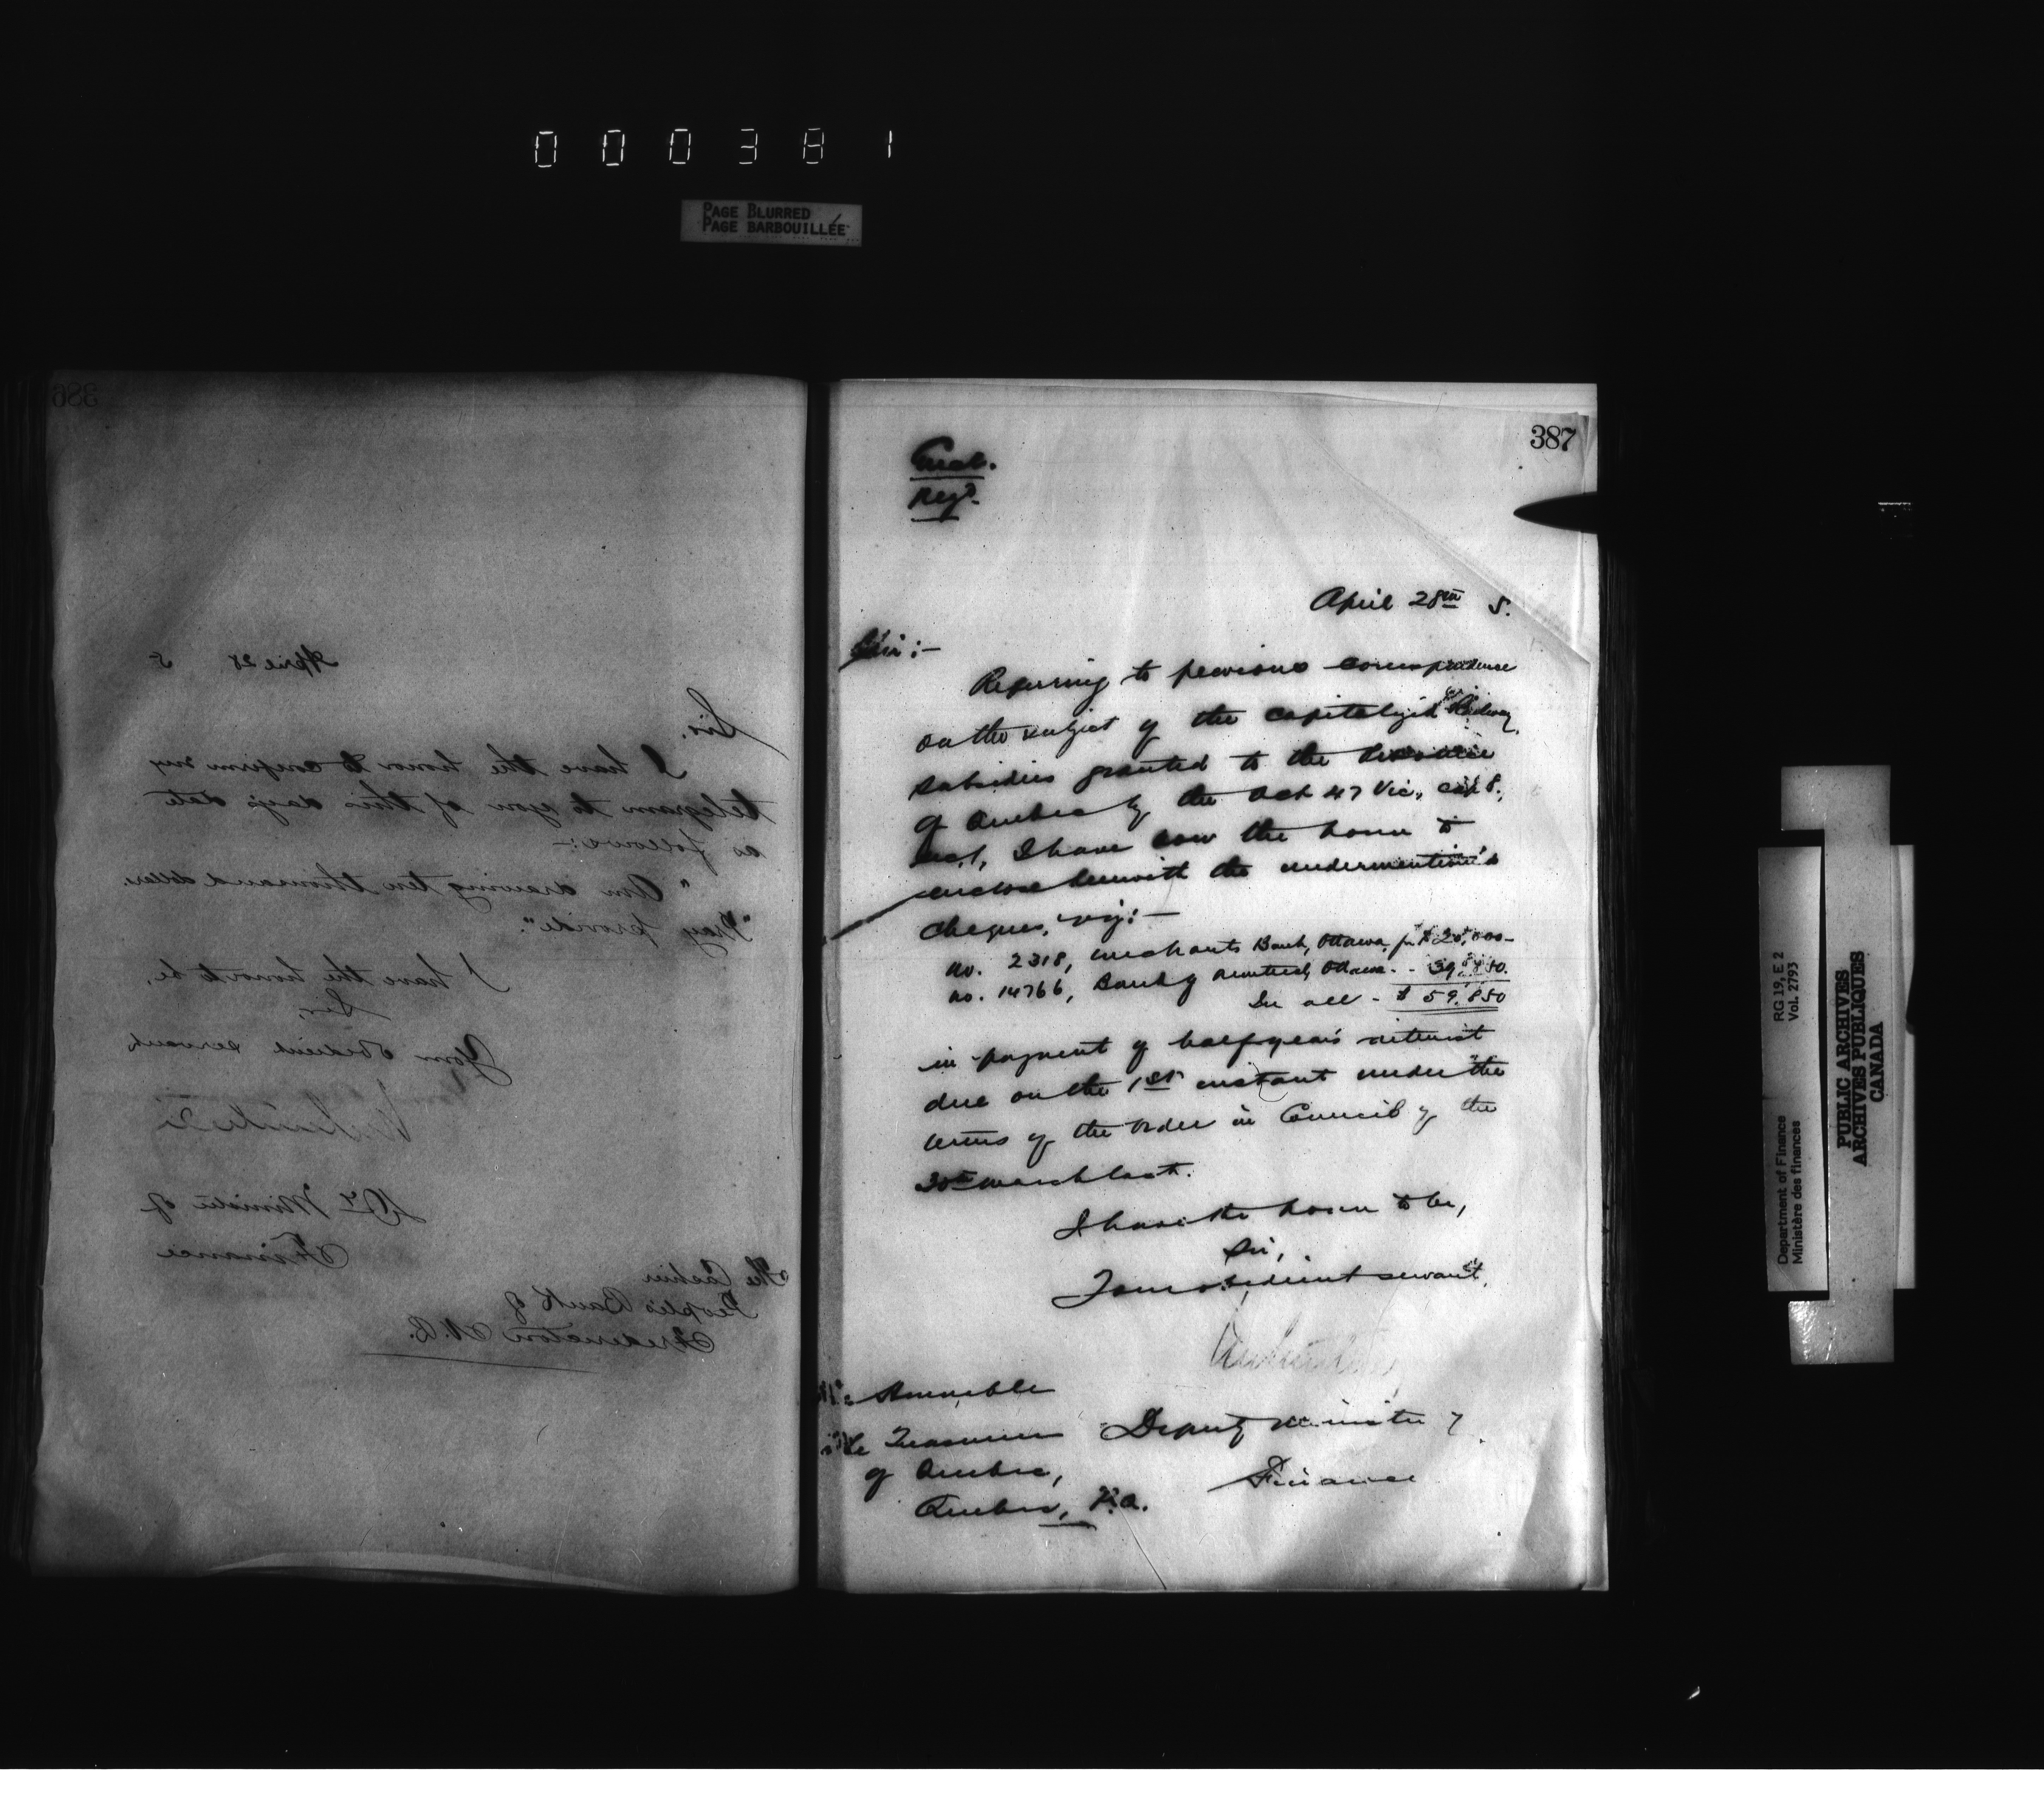 000381
PAGE BLURRED
PAGE BARBOUILLÉE
386
April 28 5
Sir,
I have the honor to confirm my
telegram to you of this day's date
as follows:-
"Am drawing ten thousand dollars.
"Pray provide".
I have the honor to be,
Sir,
Your obedient servant
Dy. Minister of
Finance
The Cashier
People's Bank of
Fredericton N.B.
387
Encl.
Regd.
April 28th 5.
Sir:-
Referring to previous correspondence
on the subject of the capitalized Railway
subsidies granted to the Province
of Quebec by the Act 47 Vic., cap 8.,
sec. 1, I have now the honor to
enclose herewith the undermention'd
cheques, viz:-
No. 2318, Merchants Bank, Ottawa, for $20,000-
No. 14766, Bank of Montreal, Ottawa - - 39,850.
In all - $59,850
in payment of half year's interest
due on the 1st instant under the
terms of the Order in Council of the
30th March last.
I have the honor to be,
Sir,
Your obedient servant,
Deputy Minister of
Finance
The Honorable
the Treasurer
of Quebec,
Quebec, P.Q.
Department of Finance
Ministère des finances
RG 19, E 2
Vol. 2793
PUBLIC ARCHIVES
ARCHIVES PUBLIQUES
CANADA